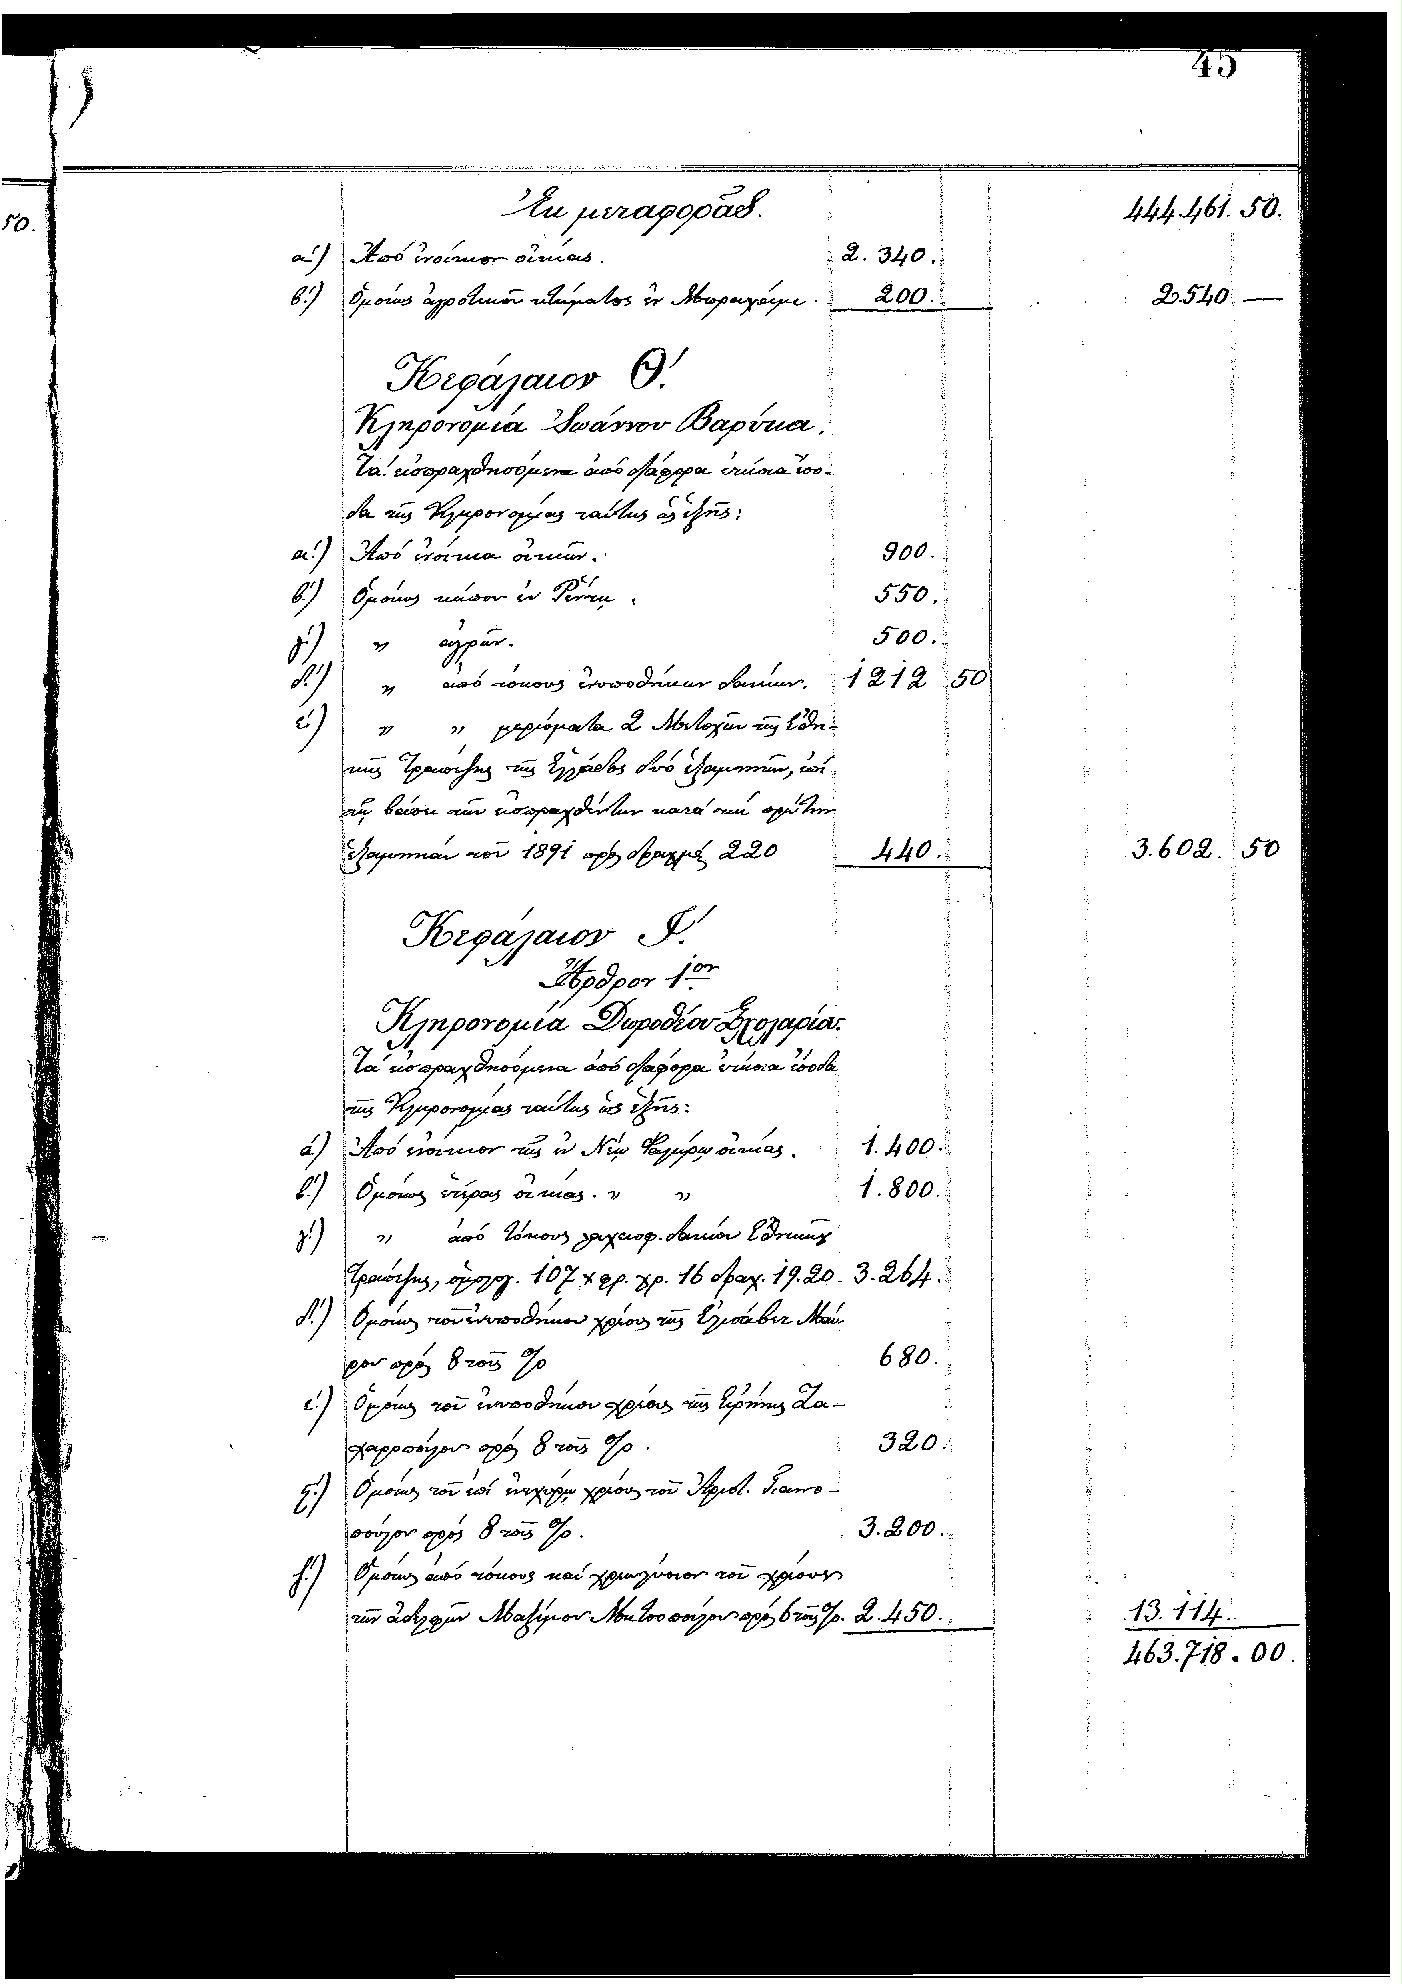 45
50.
Ἐκ μεταφορᾶς. 444.461. 50.
α΄) Ἀπό ἐνοίκιον οἰκίας. 2.340.
β΄.) Ὁμοίως ἀγροτικοῦ κτήματος ἐν 200. 2.540 —
Κεφάλαιον Θ΄.
Κληρονομία Ἰωάννου Βαρύκα.
Τά εἰσπραχθησόμενα ἀπό διάφορα ἐτήσια ἔσο-
δα τῆς Κληρονομίας ταύτης ὡς ἑξῆς:
α΄.) Ἀπό ἐνοίκια οἰκιῶν. 900.
β΄.) Ὁμοίως κήπου ἐν 550.
γ΄) " ἀγρῶν. 500.
δ΄.) " ἀπό τόκους ἐνυποθήκων δανείων. 1212 50
ε΄) " " μερίσματα 2 Μετοχῶν τῆς Ἐθνι-
κῆς Τραπέζης τῆς Ἑλλάδος δύο ἑξαμηνιῶν, ἐπί
τῇ βάσει τῶν εἰσπραχθέντων κατά τήν πρώτην
ἑξαμηνίαν τοῦ 1891 πρός δραχμάς 220 440. 3.602. 50
Κεφάλαιον Ι΄.
Ἄρθρον 1ον
Κληρονομία Δωροθέου Σχολαρίου.
Τά εἰσπραχθησόμενα ἀπό διάφορα ἐτήσια ἔσοδα
τῆς Κληρονομίας ταύτης ὡς ἑξῆς:
α΄) Ἀπό ἐνοίκιον τῆς ἐν Νέῳ Φαλήρῳ οἰκίας. 1.400.
β΄.) Ὁμοίως ἑτέρας οἰκίας. " " 1.800.
γ΄.) " ἀπό τόκους λαχειοφ. δανείου Ἐθνικῆς
Τραπέζης, ὁμολογ. 107 χ φρ. χρ. 16 δραχ. 19.20 3.264.
δ΄.) Ὁμοίως τοῦ ἐνυποθήκου χρέους τῆς Ἐλισάβετ Μαύ
ρου πρός 8 τοῖς % 680.
ε΄.) Ὁμοίως τοῦ ἐνυποθήκου χρέους τῆς Εἰρήνης Ζα-
χαροπούλου πρός 8 τοῖς %. 320.
ς΄.) Ὁμοίως τοῦ ἐπί ἐνεχύρῳ χρέους τοῦ Ἀριστ. Γιαννο-
πούλου πρός 8 τοῖς %. 3.200.
ζ΄.) Ὁμοίως ἀπό τόκους καί χρεωλύσιον τοῦ χρέους
τῶν ἀδελφῶν πρός 6 τοῖς %. 2.450. 13.114.
463.718.00.